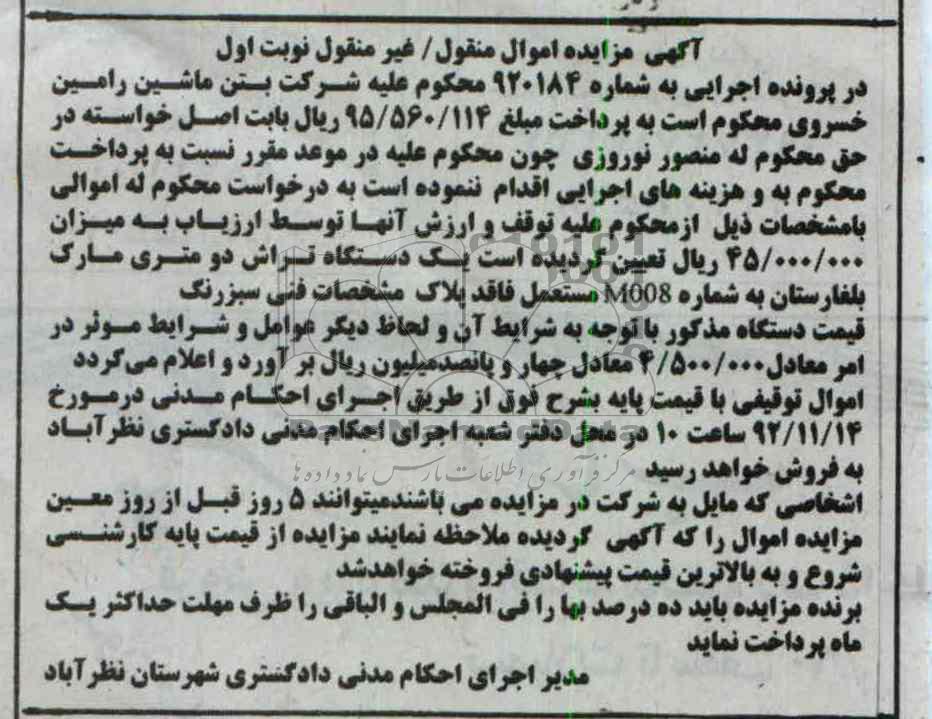 آگهی مزایده اموال منقول/ غیر منقول نوبت اول
در پرونده اجرایی به شماره ۹۲۰۱۸۴ محکوم علیه شرکت بتن ماشین رامین
خسروی محکوم است به پرداخت مبلغ ۹۵/۵۶۰/۱۱۴ ریال بابت اصل خواسته در
حق محکوم له منصور نوروزی چون محکوم علیه در موعد مقرر نسبت به پرداخت
محکوم به و هزینه های اجرایی اقدام ننموده است به درخواست محکوم له اموالی
بامشخصات ذیل ازمحکوم علیه توقف و ارزش آنها توسط ارزیاب به میزان
۴۵/۰۰۰/۰۰۰ ریال تعیین گردیده است یک دستگاه تراش دو متری مارک
بلغارستان به شماره M008 مستعمل فاقد پلاک مشخصات فنی سبزرنگ
قیمت دستگاه مذکور با توجه به شرایط آن و لحاظ دیگر عوامل و شرایط موثر در
امر معادل ۴/۵۰۰/۰۰۰ معادل چهار و پانصدمیلیون ریال بر آورد و اعلام می‌گردد
اموال توقیفی با قیمت پایه بشرح فوق از طریق اجرای احکام مدنی درمورخ
۹۲/۱۱/۱۴ ساعت ۱۰ در محل دفتر شعبه اجرای احکام مدنی دادگستری نظرآباد
به فروش خواهد رسید
مرکز فرآوری اطلاعات پارس نماد داده ها
اشخاصی که مایل به شرکت در مزایده می باشندمیتوانند ۵ روز قبل از روز معین
مزایده اموال را که آگهی گردیده ملاحظه نمایند مزایده از قیمت پایه کارشنسی
شروع و به بالاترین قیمت پیشنهادی فروخته خواهدشد
برنده مزایده باید ده درصد بها را فی المجلس و الباقی را ظرف مهلت حداکثر یک
ماه پرداخت نماید
مدیر اجرای احکام مدنی دادگستری شهرستان نظرآباد